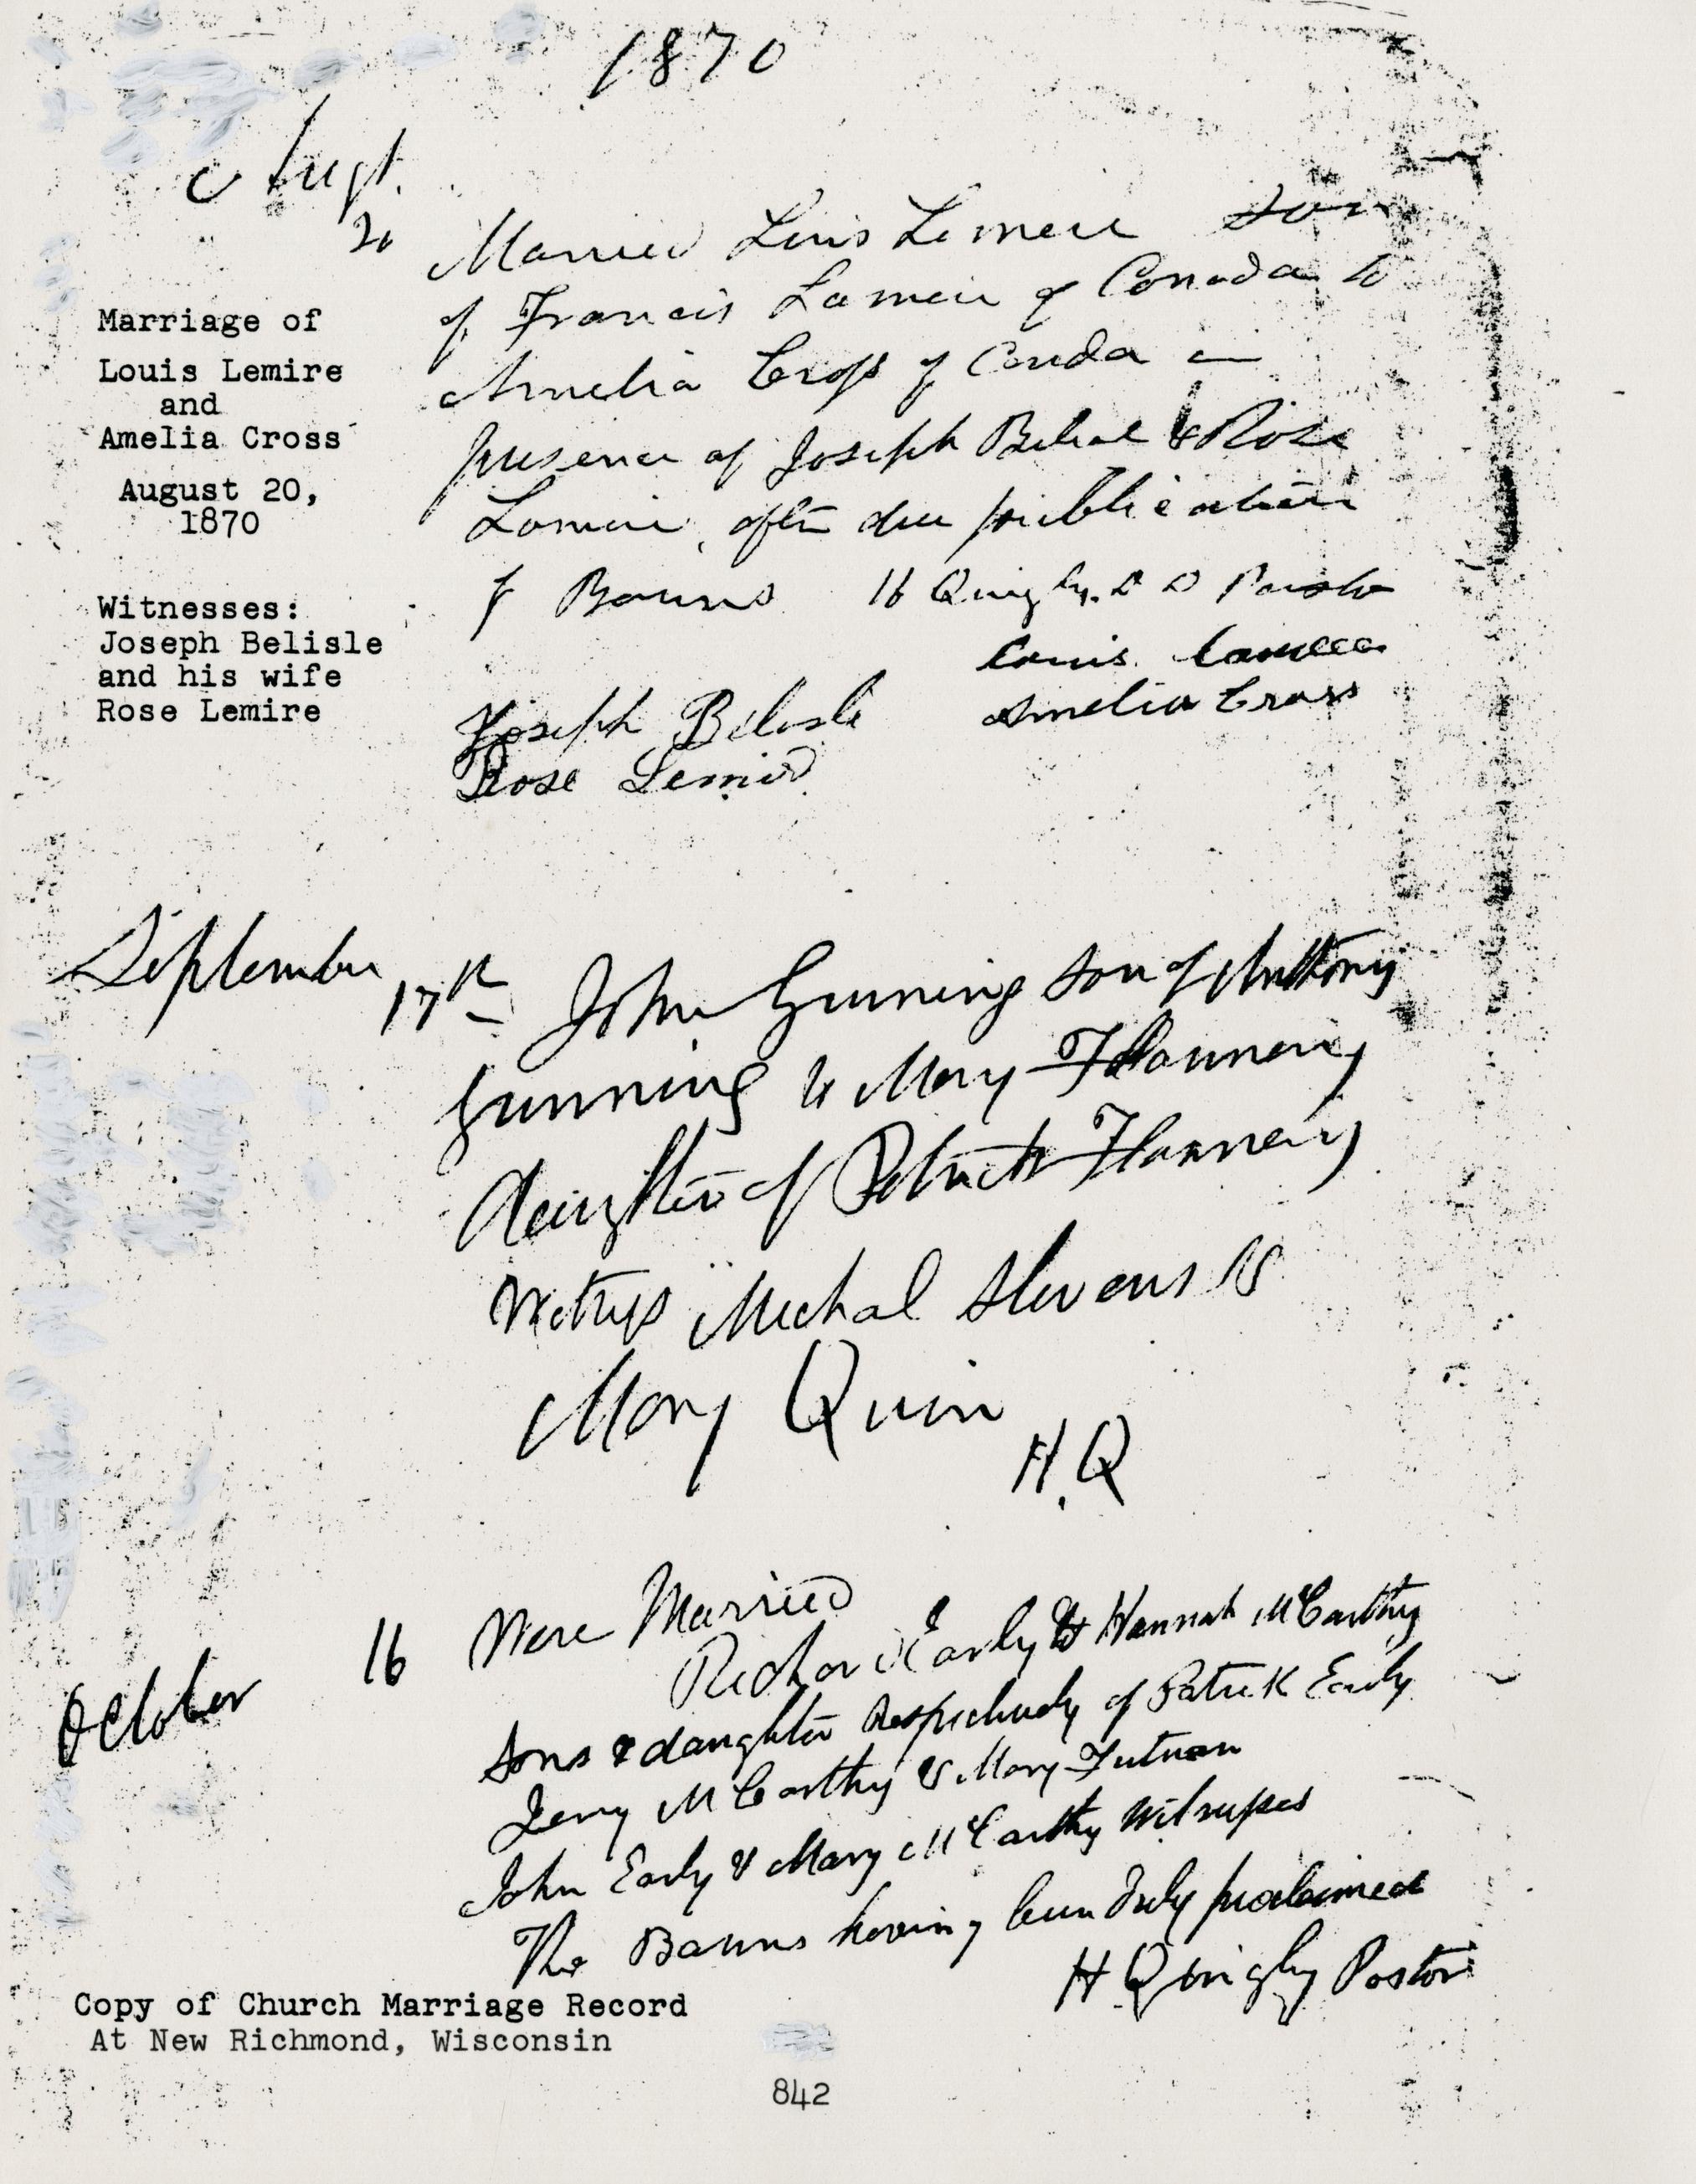 1870
Augt.
20 Married Louis Lemeir Son
of Francis Lameir of Canada to
Amelia Cross of Canda in
presence of Joseph Belisle & Rose
Lameir, after due publication
of Banns H Quigley. D D Pastor
Louis
Joseph Belisle Amelia Cross
Rose Lemire
Marriage of
Louis Lemire
and
Amelia Cross
August 20,
1870
Witnesses:
Joseph Belisle
and his wife
Rose Lemire
September 17th John Gunning son of Anthony
Gunning to Mary Flannery
daughter of Patrick Flannery
Witness Michal Stevens &
Mary Quin
H. Q
October 16 Were Married
Richard Early to Hannah McCarthy
Sons & daughter Respectively of Patrick Early
Jerry McCarthy & Mary
John Early & Mary McCarthy Witnesses
The Banns having been Duly proclaimed
H Quigley Pastor
Copy of Church Marriage Record
At New Richmond, Wisconsin
842